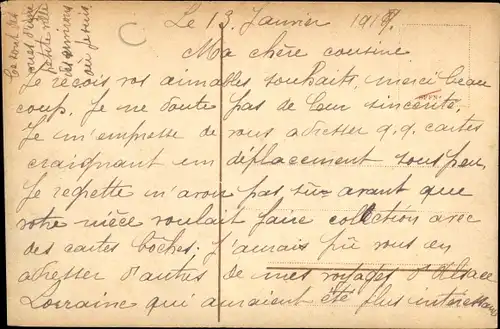 Le 13 Janvier 1919.
Ma chère cousine
Je reçois vos aimables souhaits, merci beau
coup. Je ne doute pas de leur sincérité.
Je m'empresse de vous adresser q.q. cartes
craignant un déplacement sous peu.
Je regrette n'avoir pas su avant que
votre nièce voulait faire collection avec
des cartes boches. J'aurais pu vous en
adresser d'autres de mes voyages d'Alsace
Lorraine qui auraient été plus interessants
Ce sont des
vues d'une
petite ville
des environs
où je suis